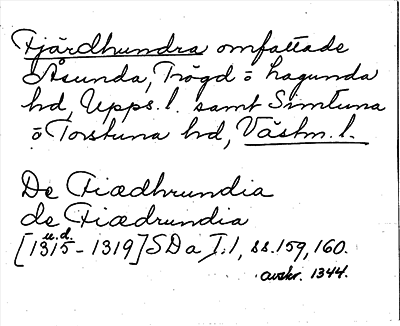 Fjärdhundra omfattade
Åsunda, Trögd o Lagunda
hd, Upps. l. samt Simtuna
o Torstuna hd, Västm. l.
De Fiædhrundia
de Fiædrundia
u.d.
[1315 - 1319] SDa I:1, ss. 159, 160.
avskr. 1344.